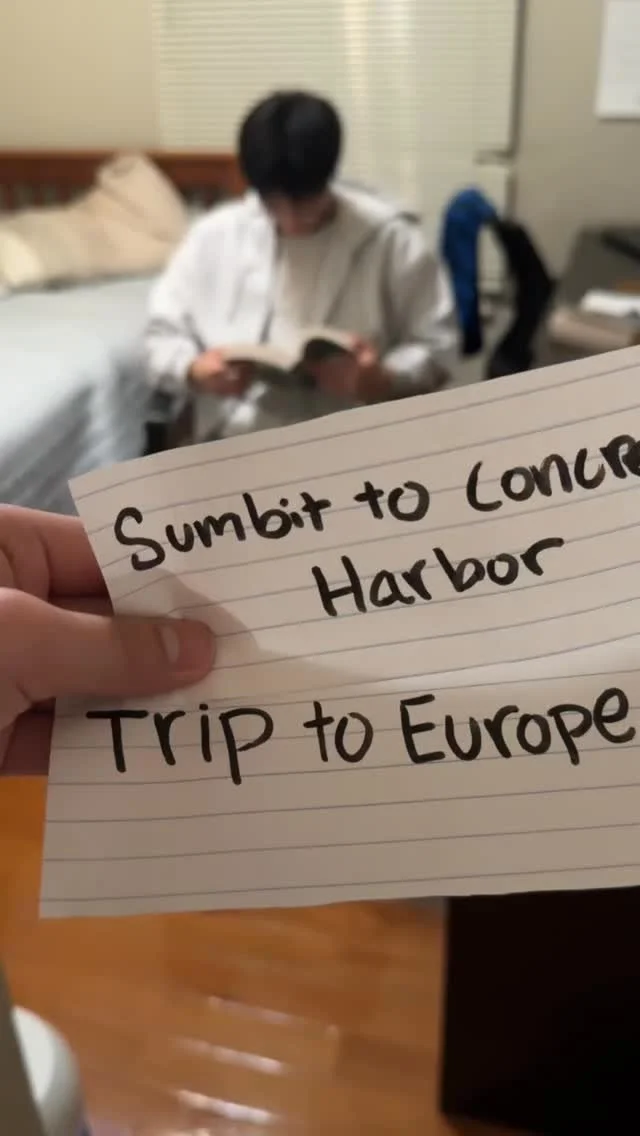 Sumbit to Concre
Harbor
Trip to Europe